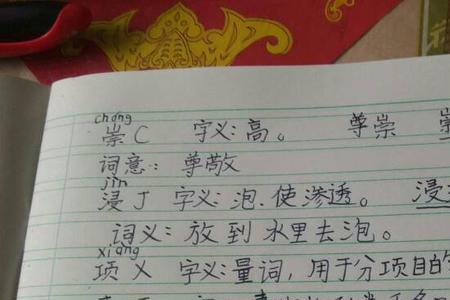 chóng
崇 C 字义:高。 尊崇
词意: 尊敬
jìn
浸 J 字义:泡.使渗透。 浸
词义: 放到水里去泡。
xiàng
项 X 字义:量词,用于分项目的